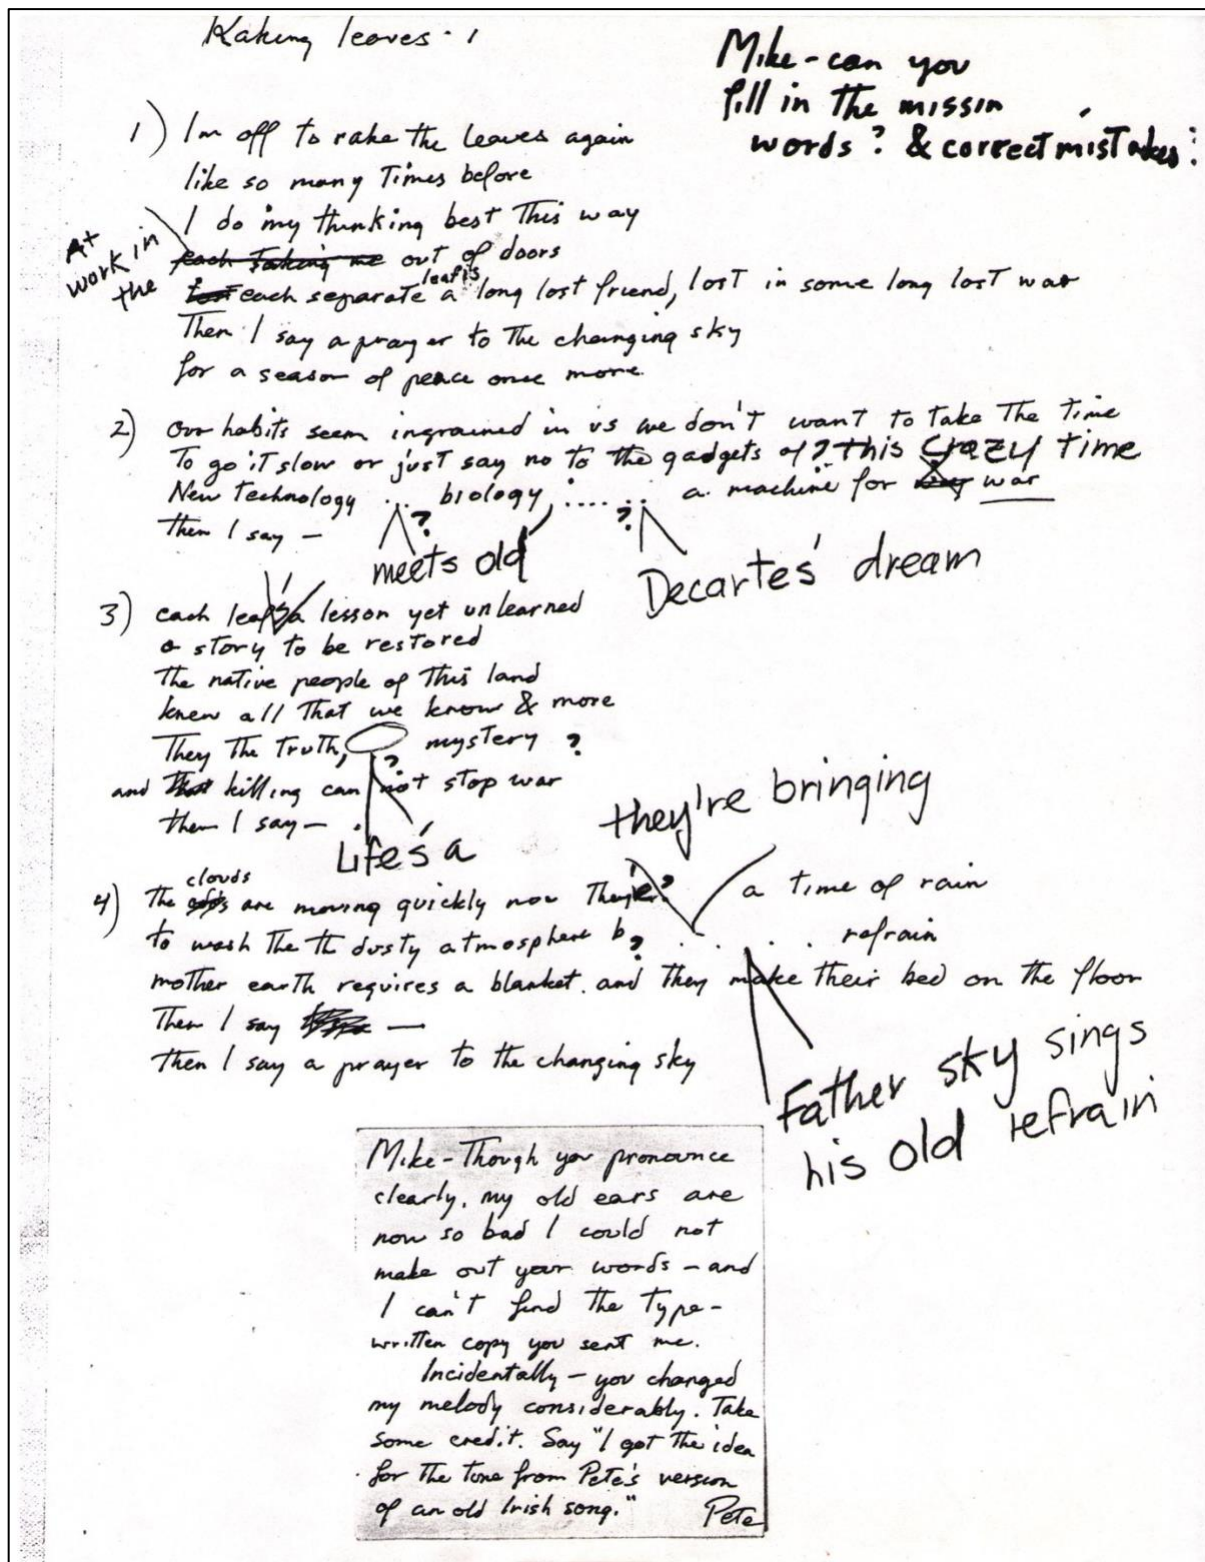 Raking leaves
Mike - can you
fill in the missin
words? & correct mistakes:
1) Im off to rake the leaves again
like so many Times before
I do my thinking best This way
At
work in
the
each taking me out of doors
each separate leaf is a long lost friend, lost in some long lost war
Then I say a prayer to the changing sky
for a season of peace once more
2) our habits seem ingrained in us we don't want to take the time
To go it slow or just say no to the gadgets of ? this Crazy time
New technology ... biology ...... a machine for war
then I say –
?
?
meets old
Decartes' dream
3) each leaf's a lesson yet unlearned
a story to be restored
The native people of This land
knew all That we know & more
They The Truth, mystery ?
?
and that killing can not stop war
then I say –
Life's a
they're bringing
4) The clouds are moving quickly now They're? a time of rain
to wash the th dusty atmosphere b? . . . . refrain
mother earth requires a blanket. and they make their bed on the floor
Then I say —
then I say a prayer to the changing sky
Father sky sings
his old refrain
Mike - Though you pronounce
clearly, my old ears are
now so bad I could not
make out your words – and
I can't find the type-
written copy you sent me.
Incidentally – you changed
my melody considerably. Take
some credit. Say "I got the idea
for the tune from Pete's version
of an old Irish song."
Pete